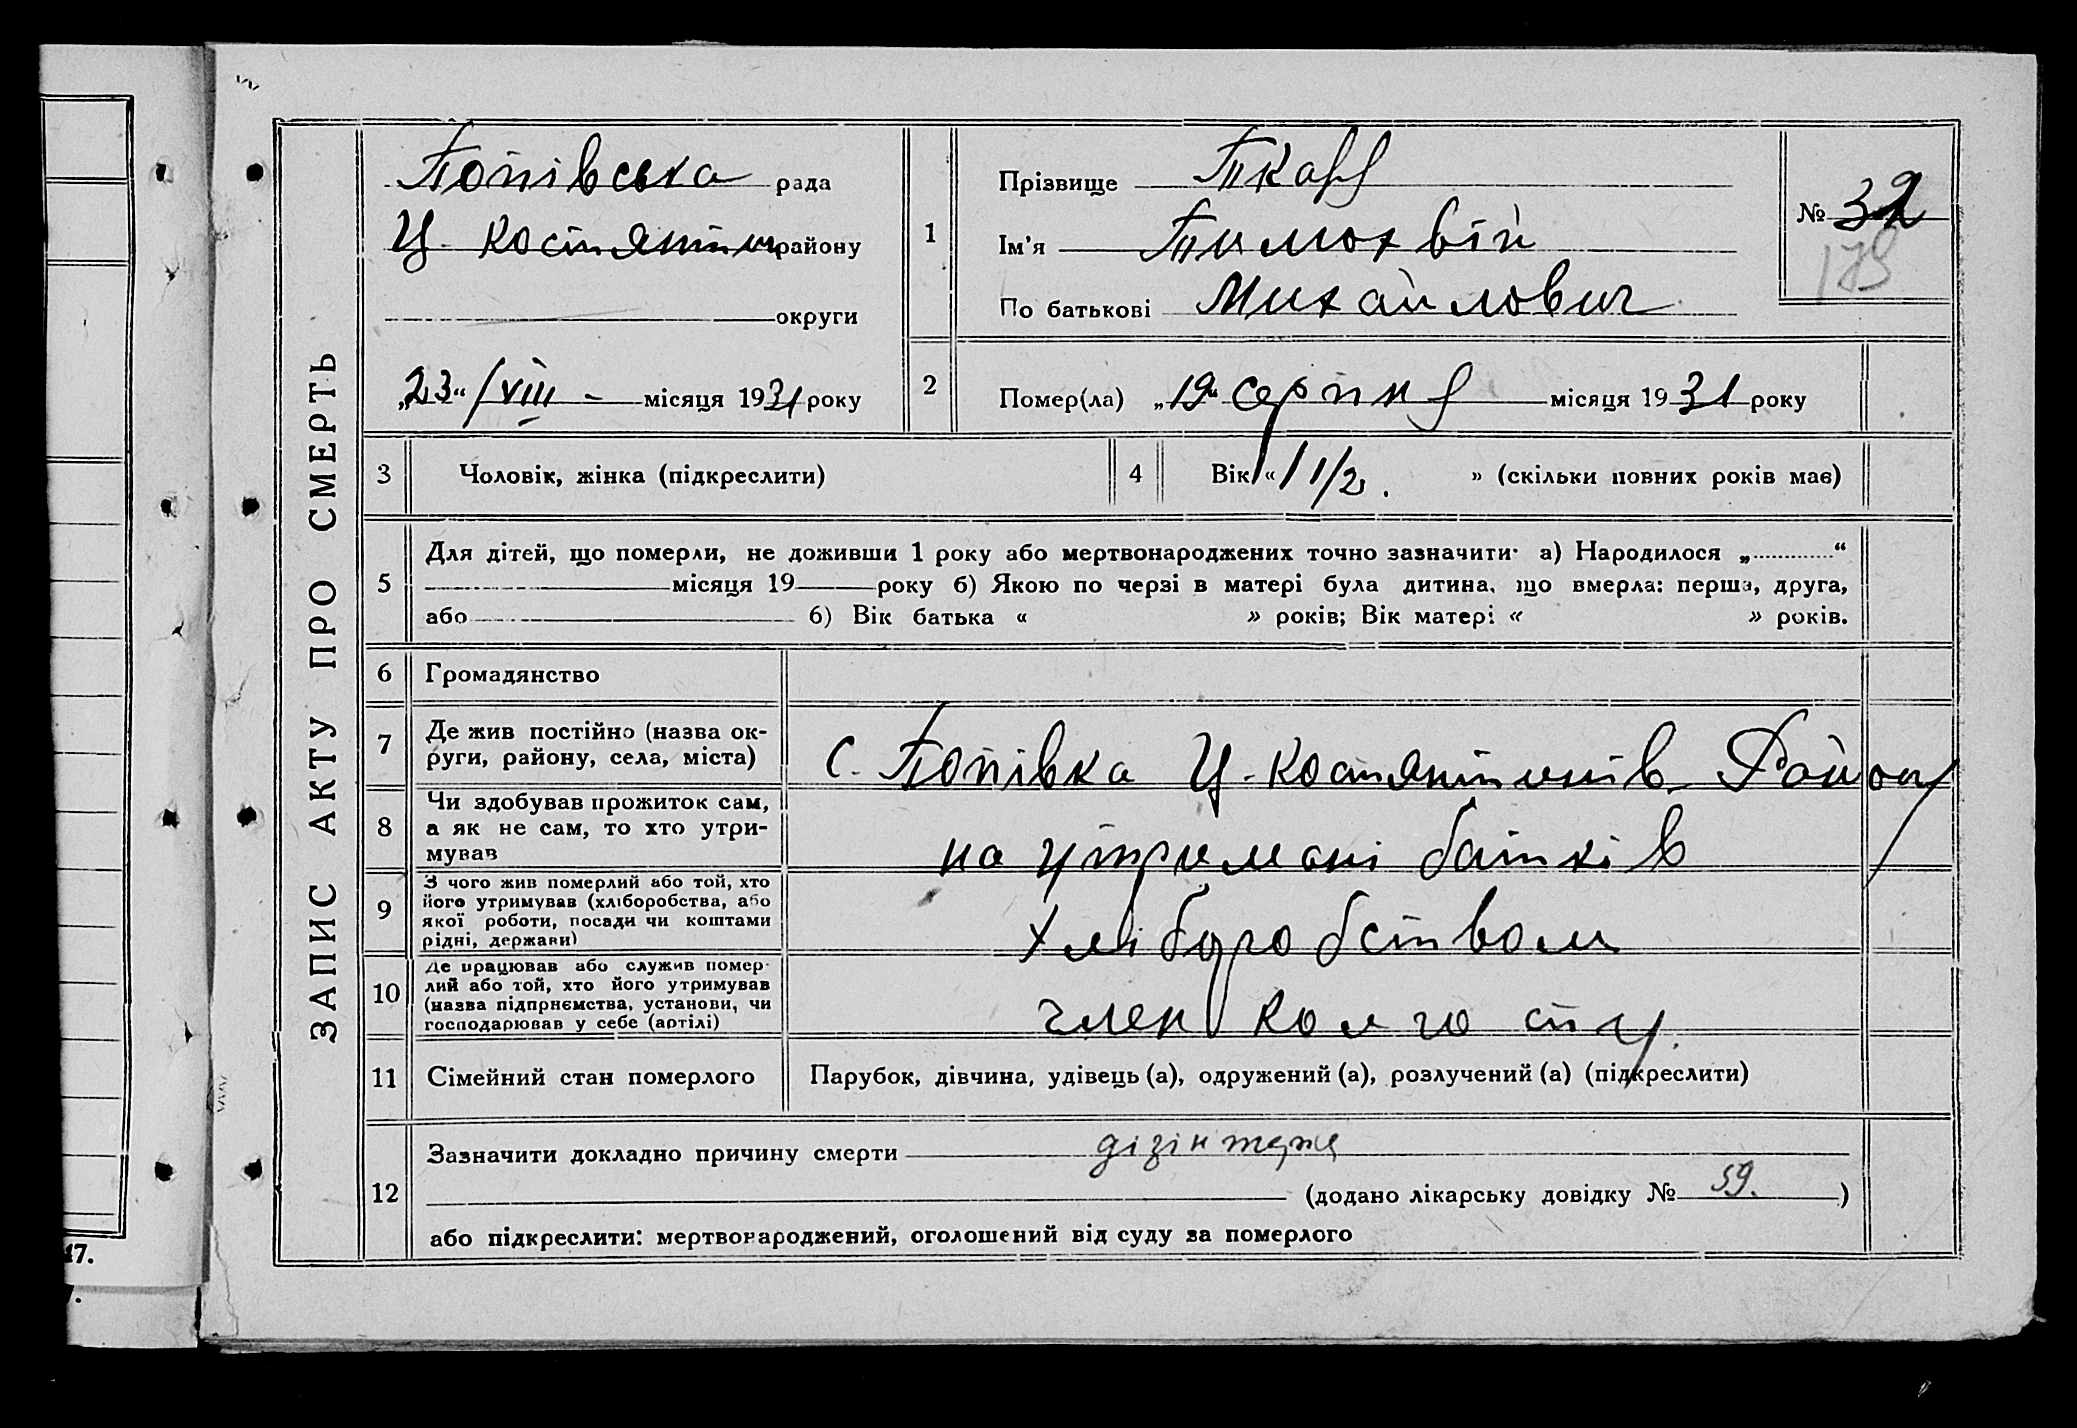 ЗАПИС АКТУ ПРО СМЕРТЬ
Попівська рада
Ц-Костянтин району
округи
„23“ /VIII – місяця 1931 року
1
Прізвище
Ім’я Тимохвій
По батькові Михайлович
№ 32
173
2
Помер(ла) „19“ серпня місяця 1931 року
3
Чоловік, жінка (підкреслити)
4
Вік « 1 1/2. » (скільки повних років має)
5
Для дітей, що померли, не доживши 1 року або мертвонароджених точно зазначити· а) Народилося „ “
місяця 19 року б) Якою по черзі в матері була дитина, що вмерла: перша, друга,
або б) Вік батька « » років; Вік матері « » років.
6
Громадянство
7
Де жив постійно (назва ок-
руги, району, села, міста)
с. Попівка Ц-Костянтинів. Району
8
Чи здобував прожиток сам,
а як не сам, то хто утри-
мував
на утримані батьків
9
З чого жив померлий або той, хто
його утримував (хліборобства, або
якої роботи, посади чи коштами
рідні, держави)
хліборобством
10
Де працював або служив помер-
лий або той, хто його утримував
(назва підприємства, установи, чи
господарював у себе (артілі)
член колгоспу.
11
Сімейний стан померлого
Парубок, дівчина, удівець (а), одружений (а), розлучений (а) (підкреслити)
12
Зазначити докладно причину смерти
(додано лікарську довідку № 59. )
або підкреслити: мертвонароджений, оголошений від суду за померлого
17.